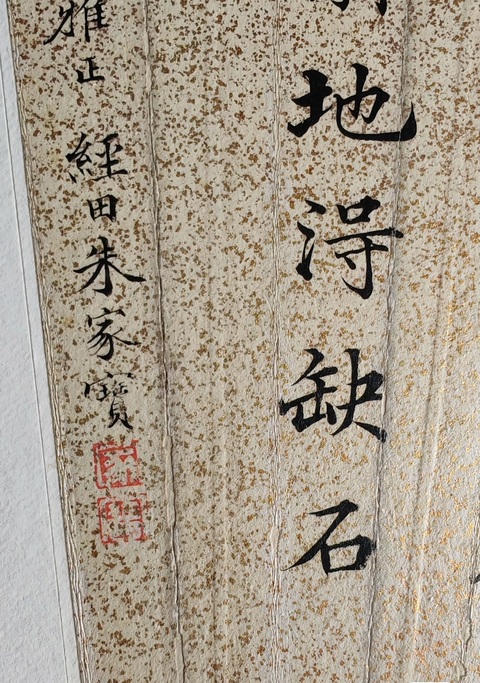 地得缺石
雅正 經田朱家寶